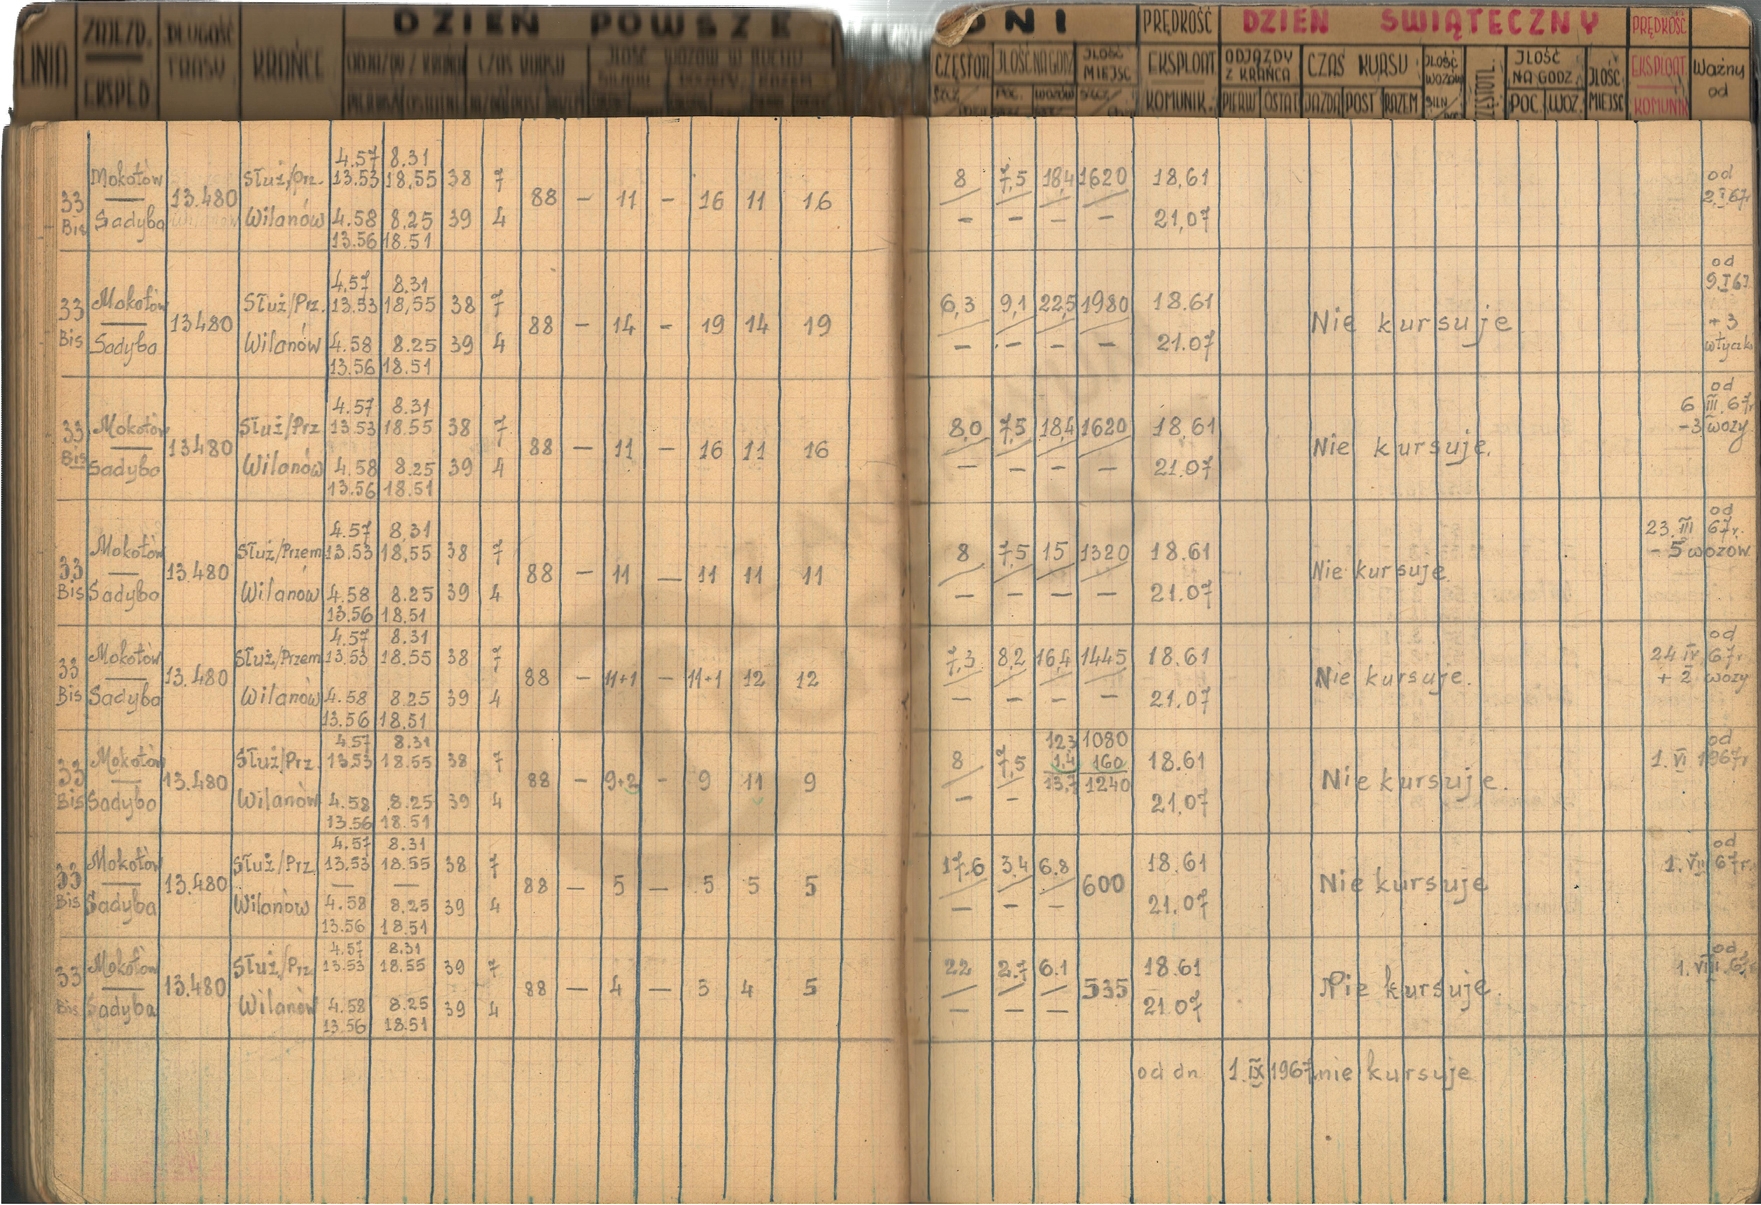 LINIA ZAJEZD. EKSPED DŁUGOŚĆ TRASY KRAŃCE DZIEŃ POWSZE DNI PRĘDKOŚĆ EKSPLOAT KOMUNIK. DZIEŃ ŚWIĄTECZNY PRĘDKOŚĆ EKSPLOAT KOMUNIK Ważny od
ODJAZDY Z KRAŃCA CZAS KURSU ILOŚĆ WAGONÓW W RUCHU CZĘSTOTL ILOŚĆ NA GODZ ILOŚĆ MIEJSC ODJAZDY Z KRAŃCA CZAS KURSU ILOŚĆ WOZÓW ILOŚĆ NA GODZ. ILOŚĆ MIEJSC
POC. WOZÓW PIERW OSTAT JAZDA POST RAZEM POC. WOZ.
4.57 8.31
Mokotów Służ/Prz. 13.53 18,55 38 7 8 7,5 18,4 1620 18,61 od
33 13.480 88 — 11 — 16 11 16 2.I.67r
Bis Sadyba Wilanów 4.58 8.25 39 4 — — — — 21,07
13.56 18.51
4.57 8.31 od
Mokotów Służ/Prz. 13.53 18,55 38 7 6,3 9,1 22,5 1980 18.61 9.I.67
33 13480 88 — 14 — 19 14 19 Nie kursuje +3
Bis Sadyba Wilanów 4.58 8.25 39 4 — — — — 21.07
13.56 18.51
4.57 8.31 od
Mokotów Służ/Prz 13.53 18.55 38 7 8,0 7,5 18,4 1620 18,61 6 III.67r
33 13480 88 — 11 — 16 11 16 Nie kursuje. -3 wozy
Bis Sadyba Wilanów 4.58 8.25 39 4 — — — — 21.07
13.56 18.51
4.57 8,31 od
Mokotów Służ/Przem 13.53 18,55 38 7 8 7,5 15 1320 18.61 23.III 67r.
33 13.480 88 — 11 — 11 11 11 Nie kursuje. - 5 wozów
Bis Sadyba Wilanów 4.58 8.25 39 4 — — — — 21.07
13.56 18.51
4.57 8.31 od
Mokotów Służ/Przem 13.53 18.55 38 7 7,3 8,2 16,4 1445 18.61 24 IV 67r
33 13.480 88 — 11+1 — 11+1 12 12 Nie kursuje. + 2 wozy
Bis Sadyba Wilanów 4.58 8.25 39 4 — — — — 21.07
13.56 18,51
4.57 8.31 12,3 1080 od
Mokotów Służ/Prz 13.53 18.55 38 7 8 7,5 1,4 160 18.61 1. VI 1967r
33 13.480 88 — 9+2 — 9 11 9 13,7 1240 Nie kursuje.
Bis Sadyba Wilanów 4.58 8.25 39 4 — — 21,07
13.56 18.51
4.57 8.31 od
Mokotów Służ/Prz. 13.53 18.55 38 7 17.6 3.4 6.8 18.61 1. VII 67r.
33 13.480 — — 88 — 5 — 5 5 5 600 Nie kursuje
Bis Sadyba Wilanów 4.58 8,25 39 4 — — — 21.07
13.56 18.51
4.57 8.31 od
Mokotów Służ/Prz 13.53 18.55 39 7 22 2.7 6.1 18.61 1. VIII.67
33 13.480 88 — 4 — 5 4 5 535 Nie kursuje.
Bis Sadyba Wilanów 4.58 8.25 39 4 — — — 21.07
13.56 18.51
od dn 1. IX 1967. nie kursuje